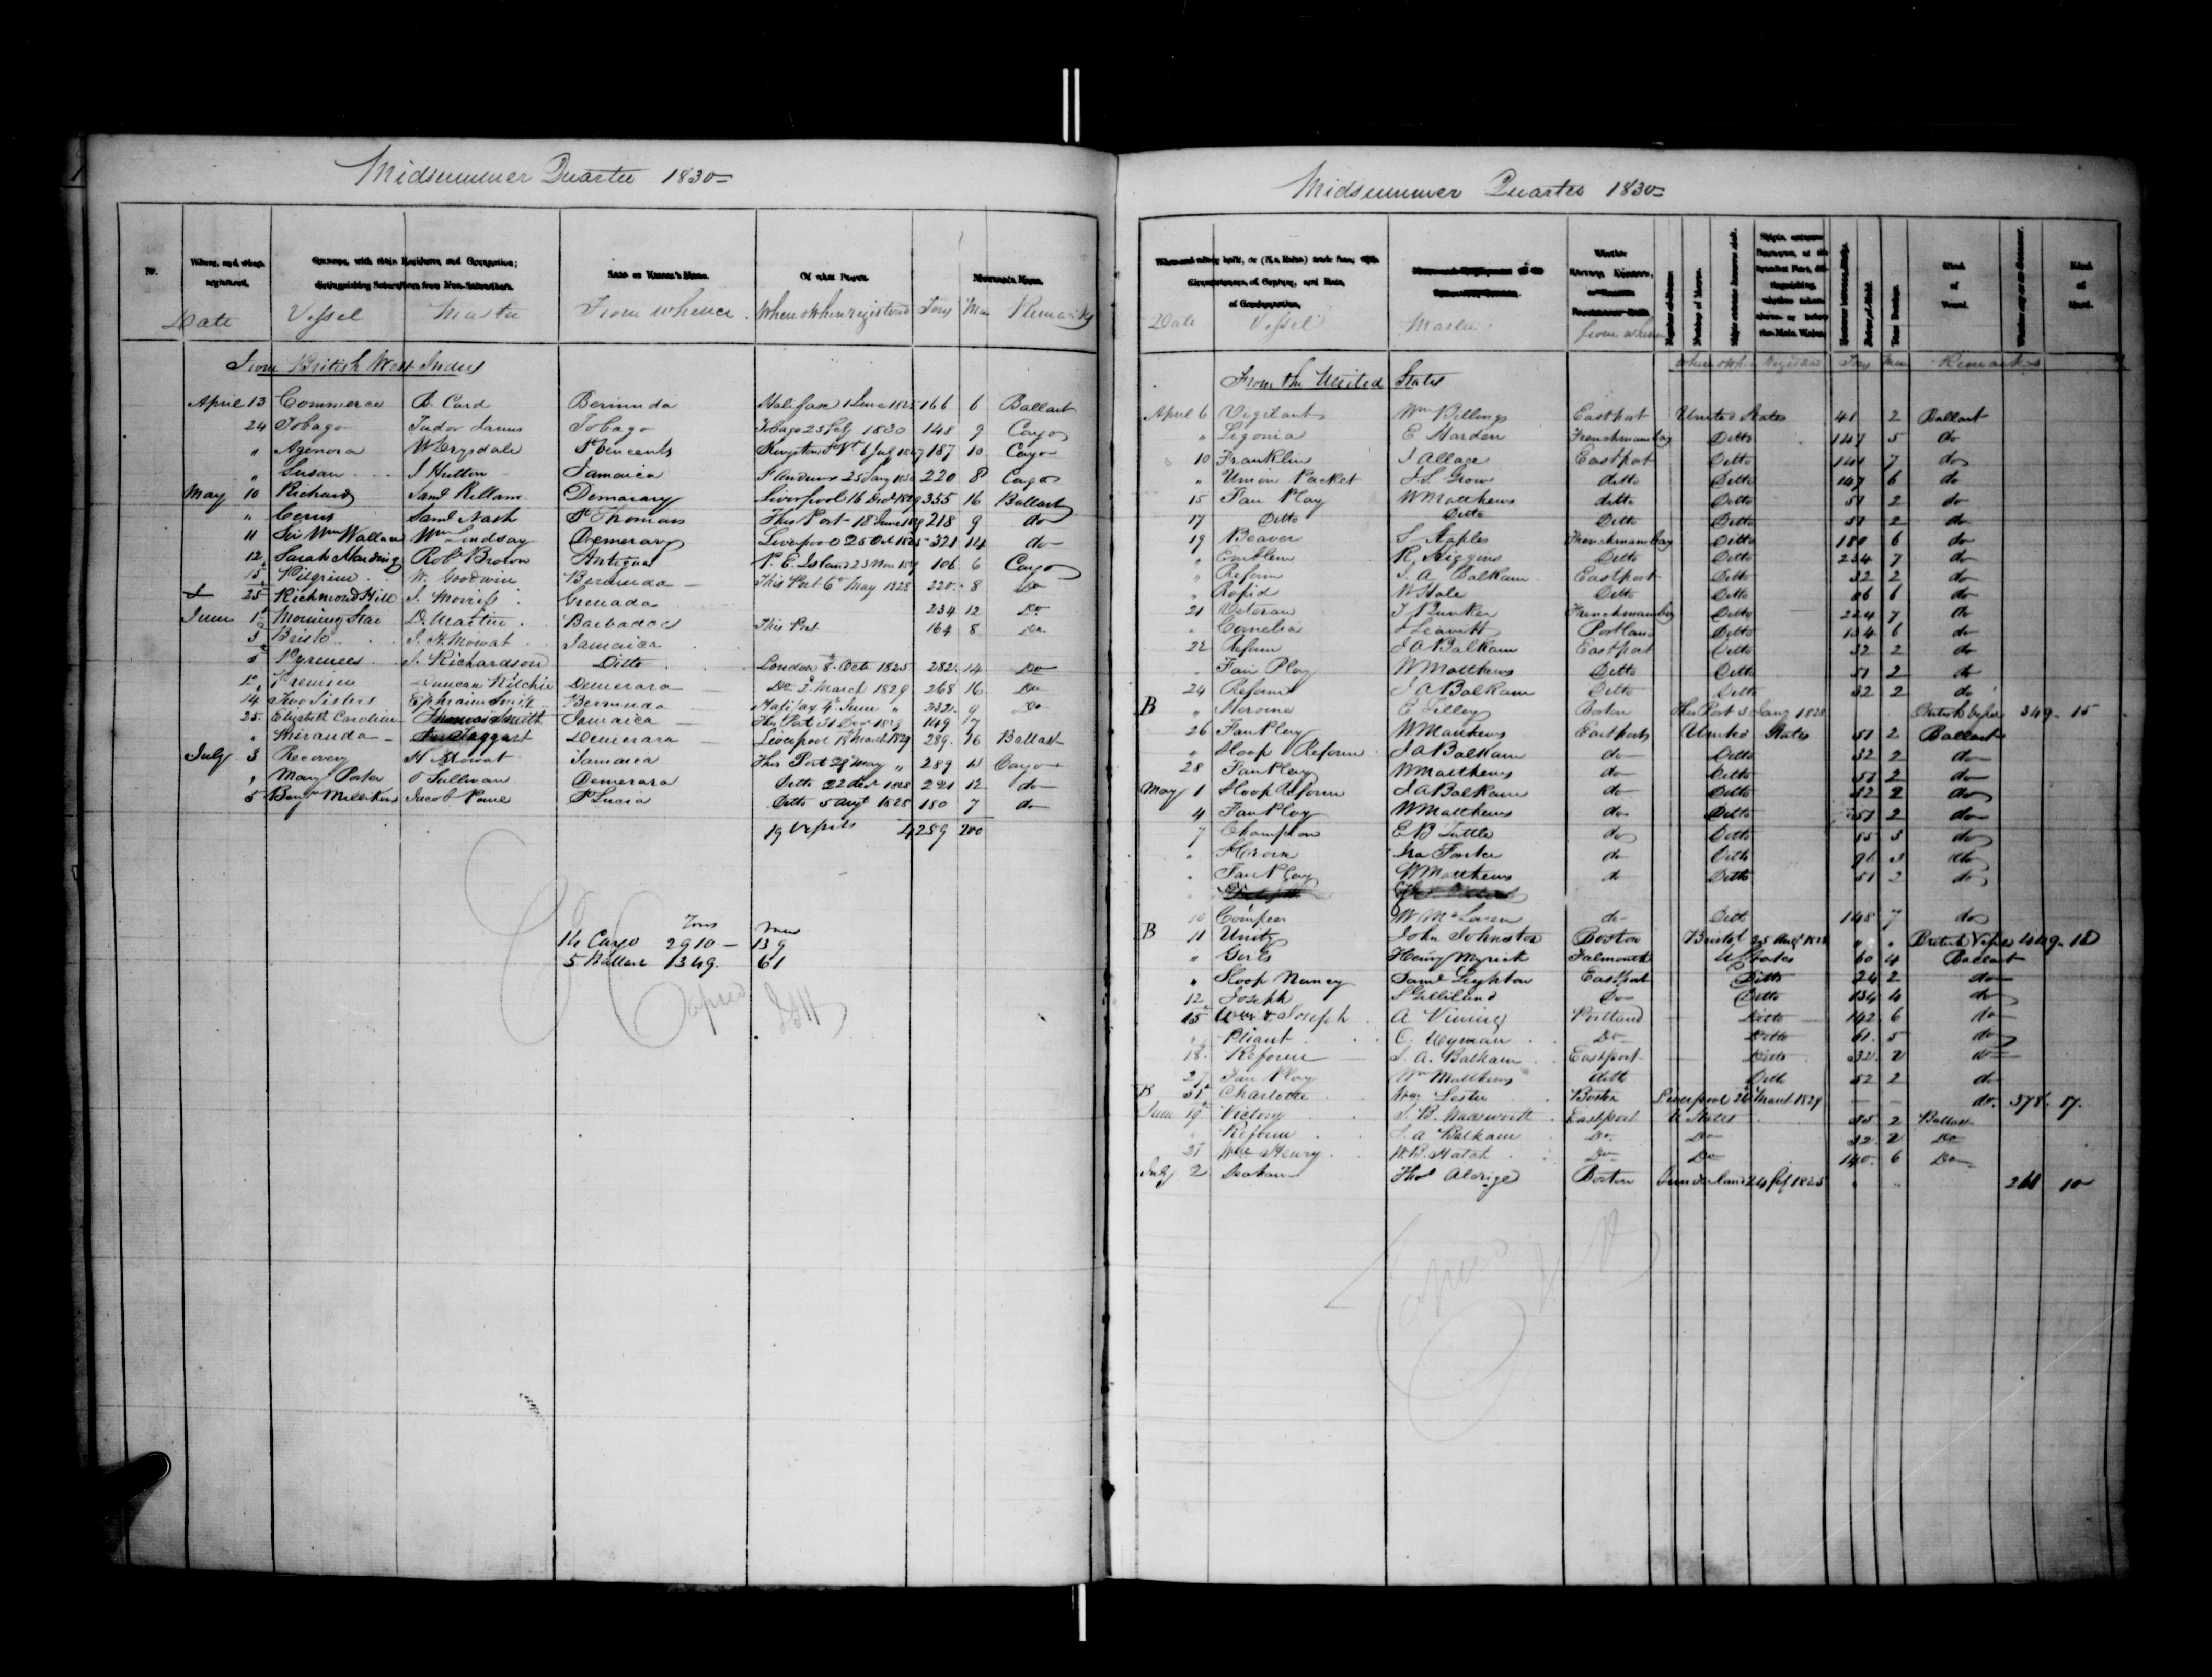 Midsummer Quarter 1830
No.
Where, and when registered.
Date Vessel Master From whence When & when registered Tons Men Remarks
From British West Indies
April 13 Commerce B. Card Bermuda Halifax 1 June 1825 166 6 Ballast
24 Tobago Tudor Tobago Tobago 23 1830 148 9 Cargo
" Agenora W Drysdale St Vincents Kingston St Vt 6 July 1827 187 10 Cargo
" Susan J Hutton Jamaica St Andrews 25 Jany 220 8 Cargo
May 10 Richard Saml Killam Demarary Liverpool 16 Decr 1829 335 16 Ballast
" Ceres Saml Nash St Thomas This Port 18 June 218 9 do
11 Sir Wm Wallace Wm Lindsay Demerary Liverpool 25 Oct 1825 321 14 do
12 Sarah Harding Robt Brown Antigua P. E. Island 23 Nov 106 6 Cargo
15 Pilgrim W. Goodwin Bermuda This Port 6 May 1828 220 8 Do
25 Richmond Hill J. Morriss Grenada 234 12 Do
June 1st Morning Star D. Martin Barbadoes This Port 164 8 Do
3 J. H. Mowat Jamaica
5 Pyrenees J. Richardson Ditto London 8 Octr 1825 282 14 Do
Duncan Ritchie Demerara Do 2 March 1829 268 16 Do
14 Two Sisters Ephraim Smith Bermuda Halifax 4th June " 232 9 Do
25 Elizabeth Caroline Thomas Smith Jamaica This Port 31 Decr 1829 149 7
" Miranda Taggart Demerara Liverpool 18 March 1829 289 16 Ballast
July 3 Recovery H Mowat Jamaica This Port 29 May " 289 13 Cargo
" Mary Porter O Sullivan Demerara Ditto 22 1828 291 12 do
5 Benjn Milliken Jacob St Lucia Ditto 5 Augt 1828 180 7 do
19 Vessels 4259 200
Tons Men
14 Cargo 2910 139
5 Ballast 1349 61
Copied
Midsummer Quarter 1830
Date Vessel Master from whence
When & when Registered Tons Men Remarks
From the United States
April 6 Vigilant Wm Billings Eastport United States 41 2 Ballast
" Ligonia E Harden Frenchmans bay Ditto 147 5 do
10 Franklin J Allace Eastport Ditto 141 7 do
" Union Packet J. S. Grow ditto Ditto 147 6 do
15 Fair Play W Matthews ditto Ditto 51 2 do
17 Ditto Ditto Ditto Ditto 51 2 do
19 Beaver S Staples Frenchmans bay Ditto 180 6 do
" Emblem R Higgins Ditto Ditto 234 7 do
" Reform J. A. Balkam Eastport Ditto 32 2 do
" Rapid W Hale Ditto Ditto 86 6 do
21 Veteran J Bunker Frenchmans bay Ditto 224 7 do
" Cornelia Leavitt Portland Ditto 134 6 do
22 Reform J A Balkam Eastport Ditto 32 2 do
" Fair Play W Matthews Ditto Ditto 51 2 do
24 Reform J A Balkam Ditto Ditto 32 2 do
B " Heroine E Lilley Boston This Port 3 Jany 1828 British Vessel 349 15
26 Fair Play W Matthews Eastport United States 51 2 Ballast
" Sloop Reform J A Balkam do Ditto 32 2 do
28 Fair Play W Matthews do Ditto 51 2 do
May 1 Sloop Reform J A Balkam do Ditto 32 2 do
4 Fair Play W Matthews do Ditto 51 2 do
7 Champion E B Tuttle do Ditto 85 3 do
" Heroine Ira Foster do Ditto 96 3 do
" Fair Play W Matthews do Ditto 51 2 do
10 Compeer W McLaren do Ditto 148 7 do
B 11 Unity John Johnston Boston Bristol 25 Augt " " British Vessel 449 18
" Girls Henry Myrick Falmouth U States 60 4 Ballast
" Sloop Nancy Saml Leighton Eastport Ditto 24 2 do
12 Joseph S Gilliland Do Ditto 134 4 do
15 Wm & Joseph A Vining Portland Ditto 142 6 do
" Pliant C. Wyman Do Ditto 61 5 do
18 Reform J. A. Balkam Eastport Ditto 32 2 do
27 Fair Play Wm Matthews ditto Ditto 52 2 do
B 31 Charlotte Wm Lester Boston Liverpool 26 March 1829 do 378 17
June 19 Victory J. B. Wadsworth Eastport U States 85 2 Ballast
Reform J. A Balkam Do Do 32 2 Do
21 Wm Henry W. B. Hatch Do Do 140 6 Do
July 2 Thos Aldrige Boston Sunderland 24 1825 " " 261 10
Copied